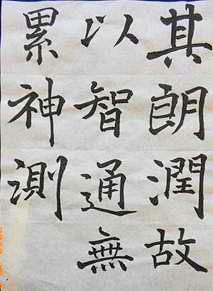 其朗潤故
以智通無
累神測